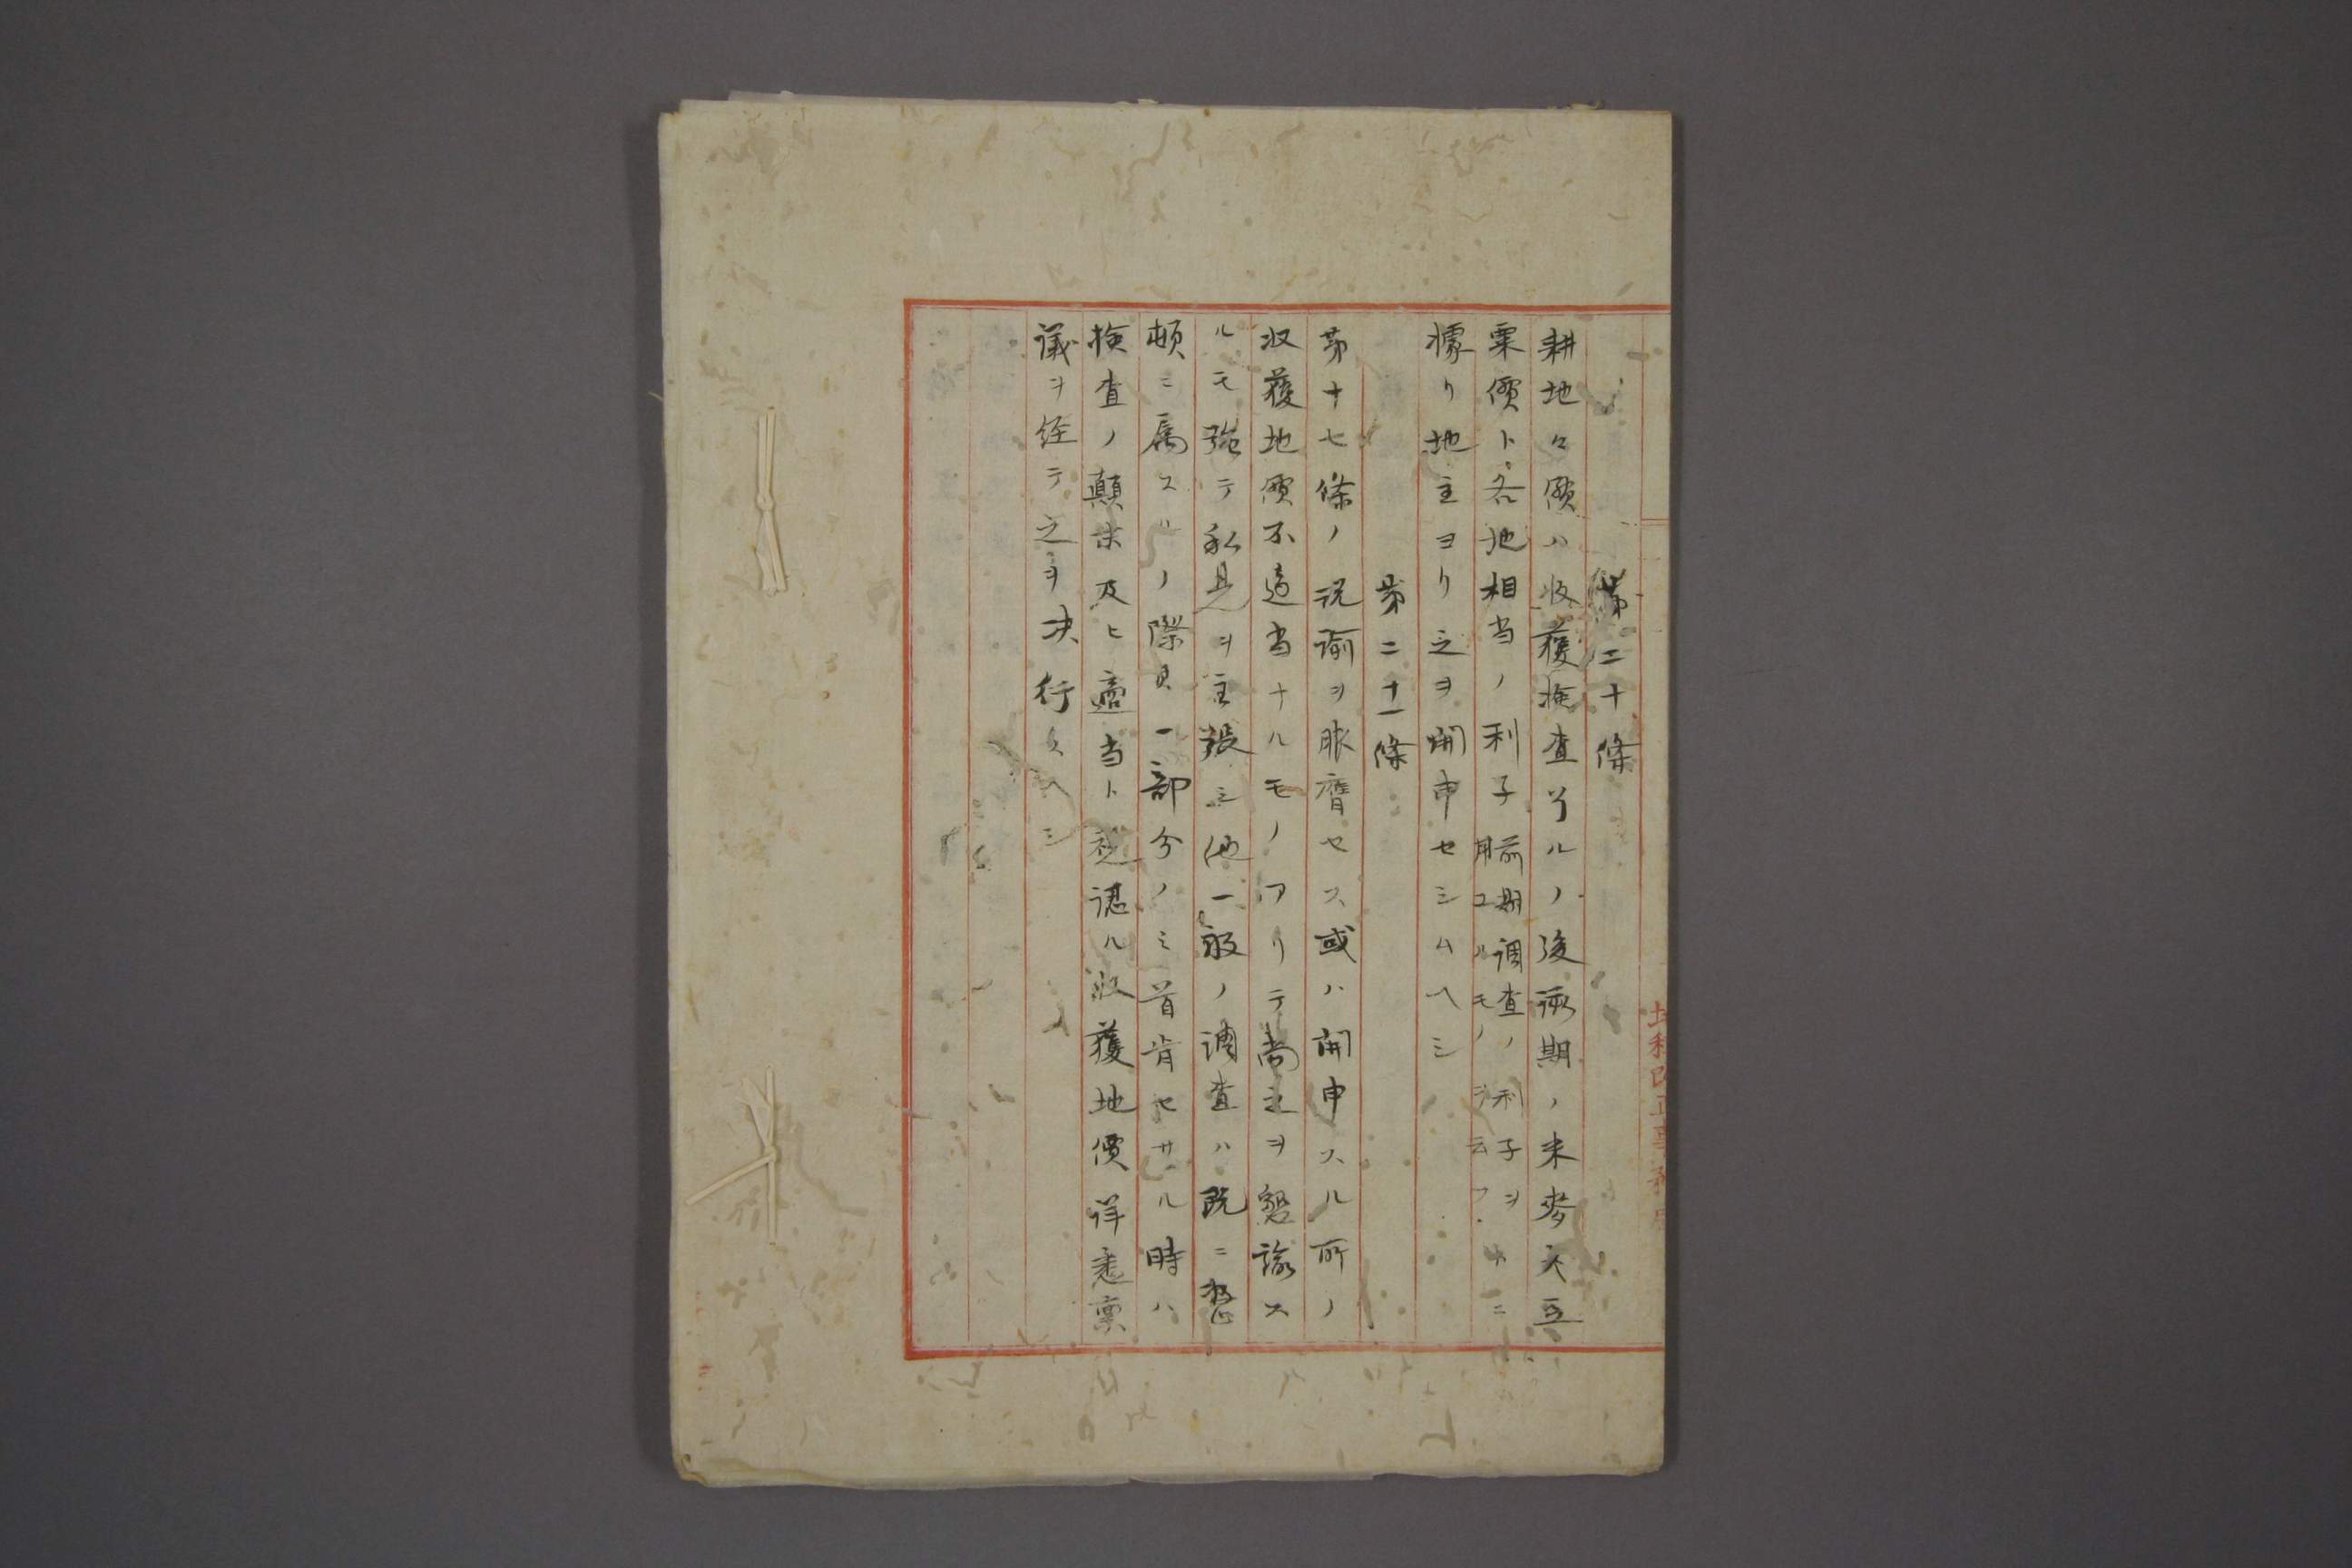 第二十條
耕地々價ハ收獲撿査畢ルノ後該期ノ米麥大豆
粟價ト各地相当ノ利子
前期調査ノ利子ヲ
用ユルモノヲ云フ
ニ
據リ地主ヨリ之ヲ開申セシムヘシ
第二十一條
第十七條ノ説諭ヲ服膺セス或ハ開申スル所ノ
收獲地價不適当ナルモノアリテ尚之ヲ懇諭ス
ルモ強テ私見ヲ主張シ他一般ノ調査ハ既ニ整
頓ニ属スルノ際只一部分ノミ首肯セサル時ハ
撿査ノ顛末及ヒ適当ト認ル收獲地價詳悉稟
議ヲ経テ之ヲ決行スヘシ